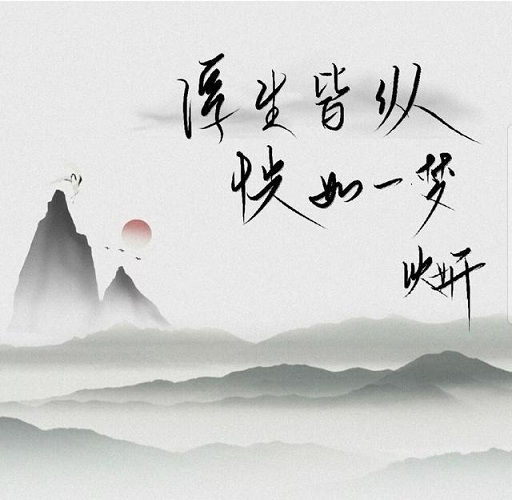 浮生皆纵
恍如一梦